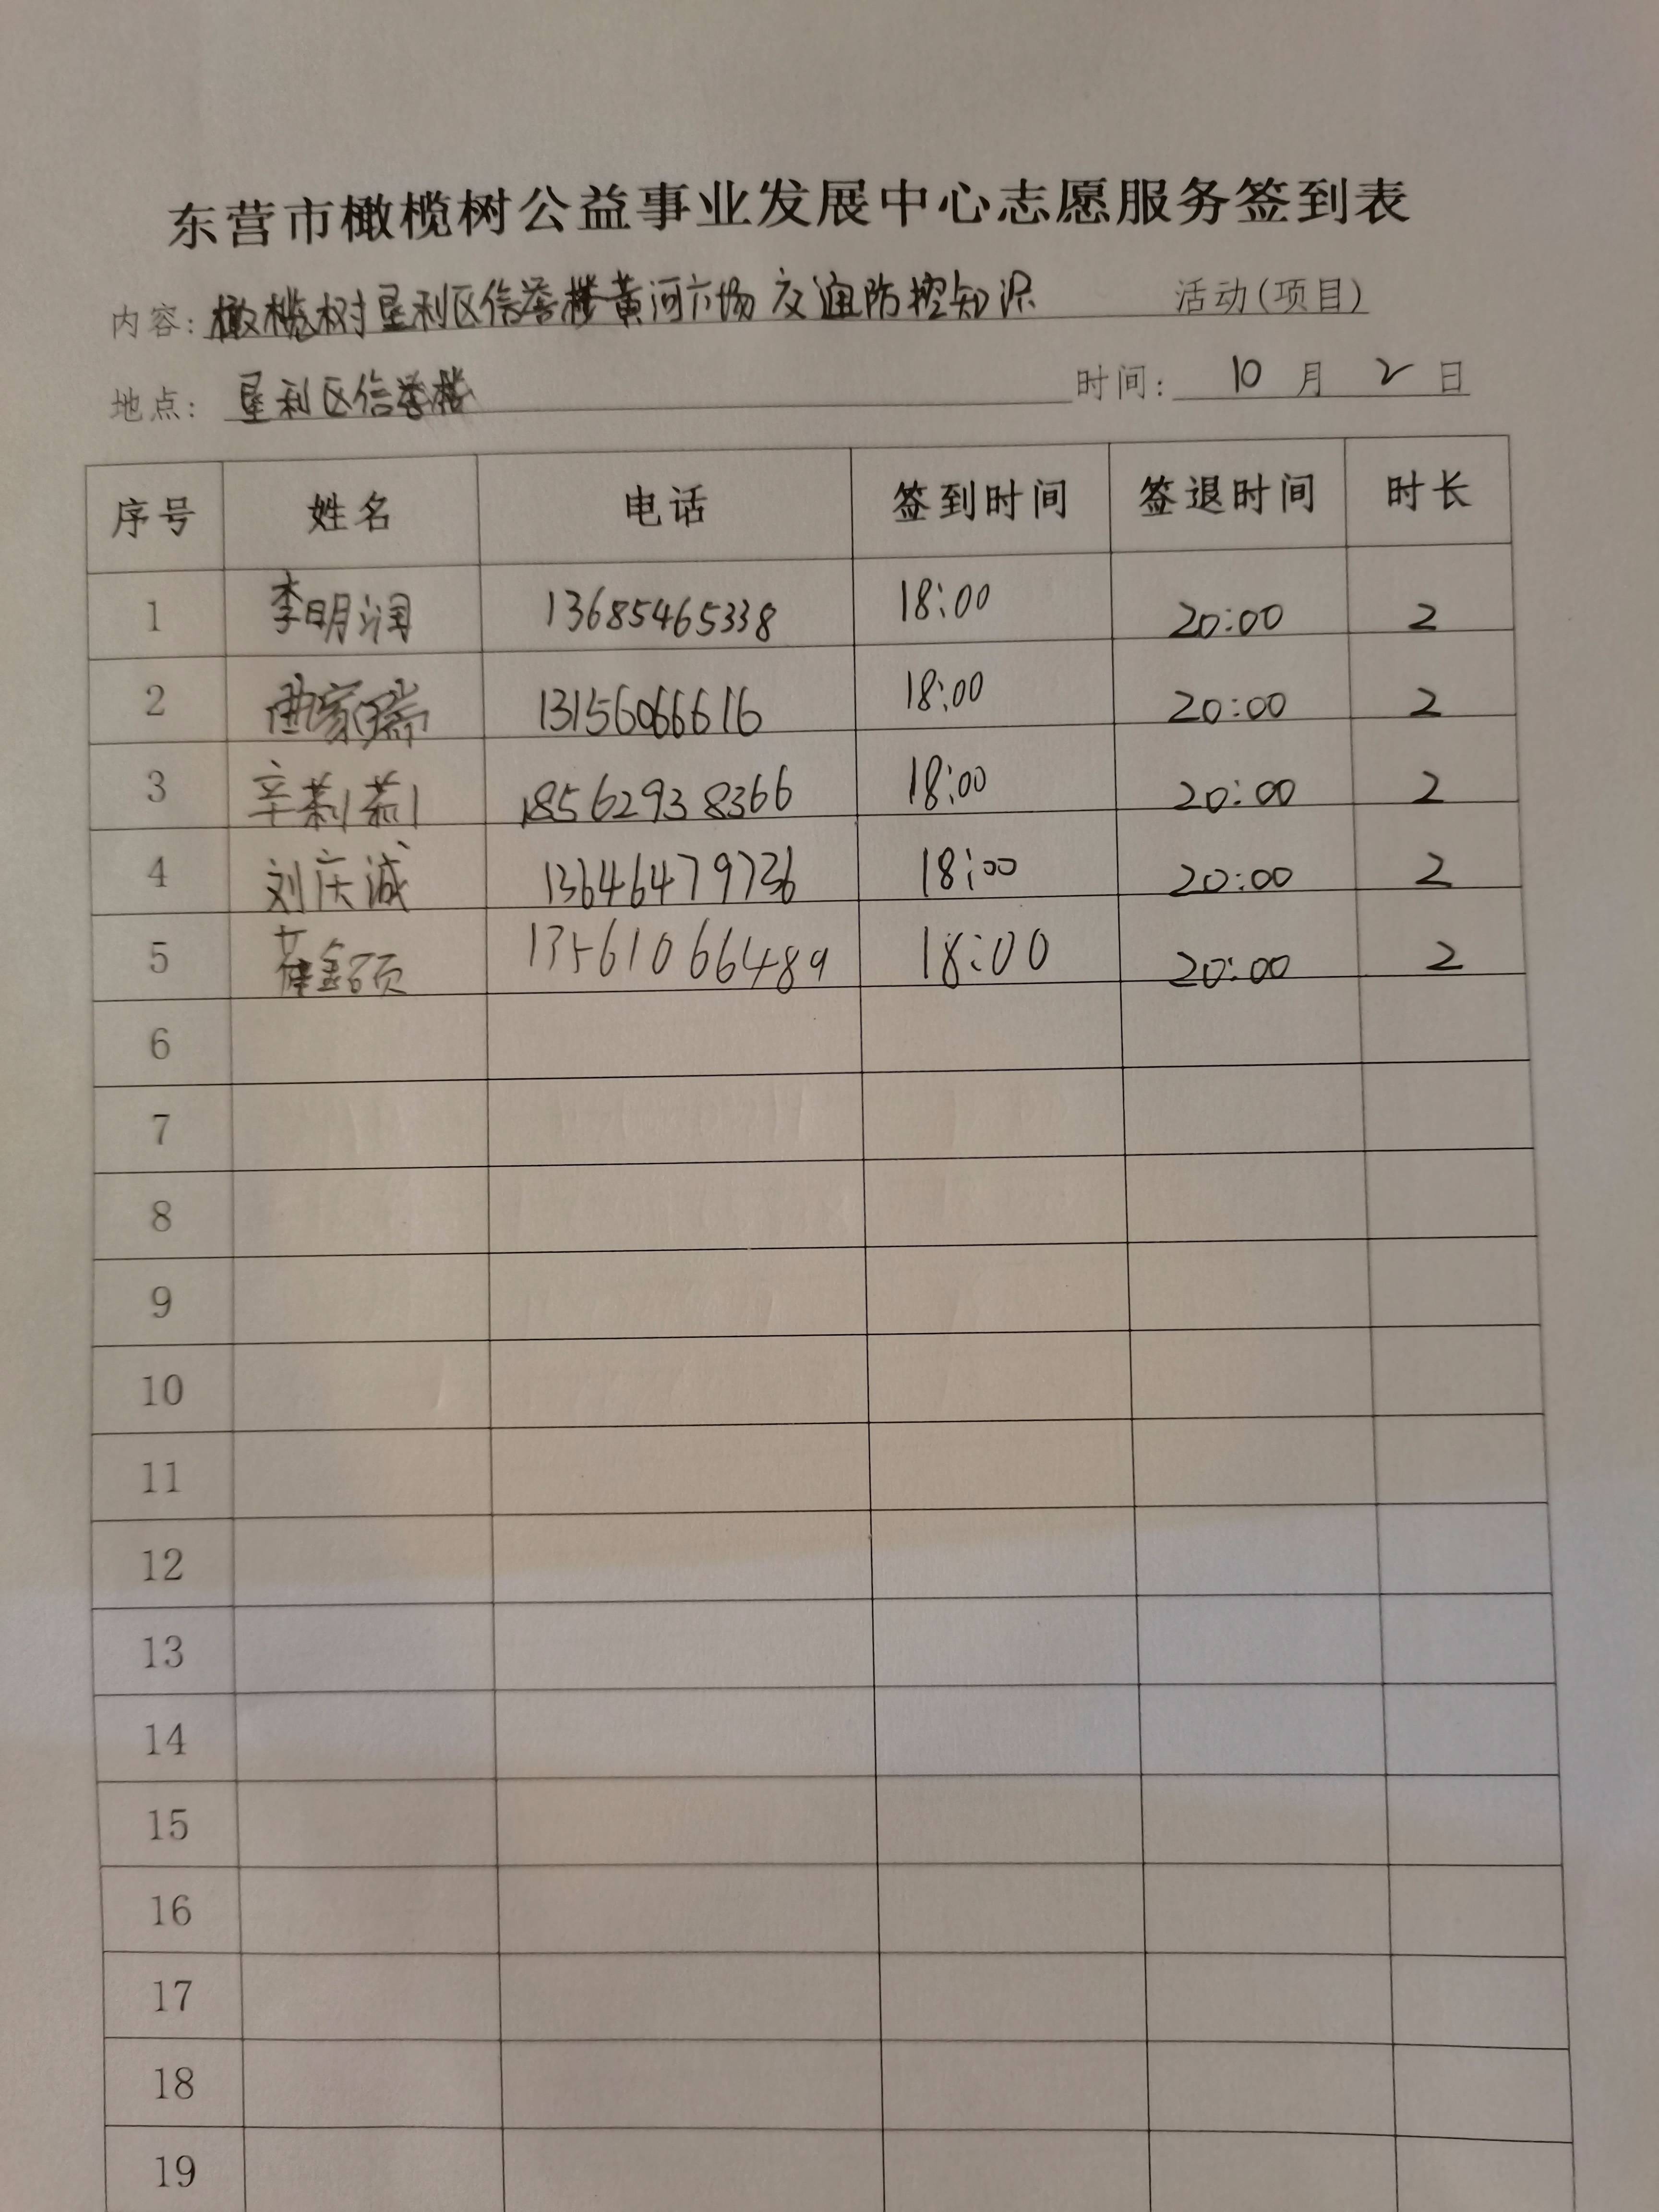 东营市橄榄树公益事业发展中心志愿服务签到表
内容: 橄榄树垦利区信誉楼黄河广场交通防控知识 活动(项目)
地点: 垦利区信誉楼 时间: 10 月 2 日
序号 姓名 电话 签到时间 签退时间 时长
1 李明润 13685465338 18:00 20:00 2
2 曲家瑞 13156066616 18:00 20:00 2
3 辛莉莉 18562938366 18:00 20:00 2
4 刘庆诚 13646479736 18:00 20:00 2
5 崔鑫硕 13561066489 18:00 20:00 2
6
7
8
9
10
11
12
13
14
15
16
17
18
19